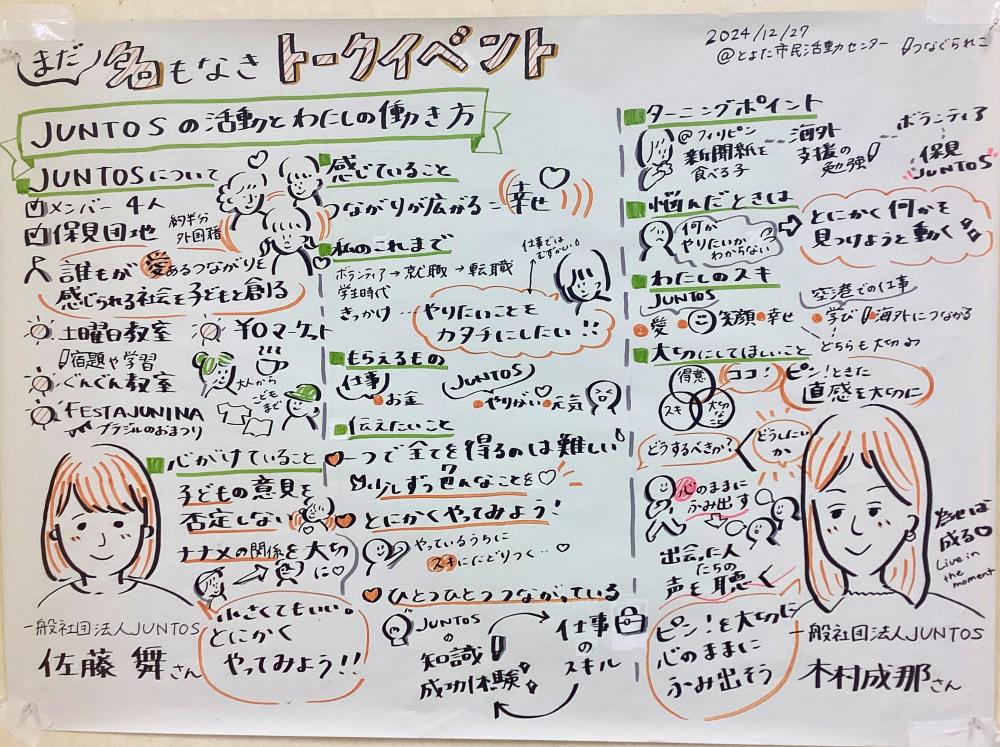 まだ名もなきトークイベント
2024/12/27
@とよた市民活動センター つなぐられこ
JUNTOSの活動とわたしの働き方
JUNTOSについて
メンバー 4人
保見団地
約半分
外国籍
誰もが愛あるつながりを
感じられる社会を子どもと創る
土曜日教室
¥0マーケット
宿題や学習
ぐんぐん教室
大人から
こどもまで
FESTAJUNINA
ブラジルのおまつり
心がけていること
子どもの意見を
否定しない
ナナメの関係を大切に
小さくてもいい。
とにかく
やってみよう!!
一般社団法人JUNTOS
佐藤 舞さん
感じていること
つながりが広がる=幸せ
私のこれまで
仕事では
むずかしい
ボランティア→就職→転職
学生時代
きっかけ…
やりたいことを
カタチにしたい!!
もらえるもの
仕事
お金
JUNTOS
やりがい
元気
伝えたいこと
一つで全てを得るのは難しい
少しずつ
ぜんなことを
とにかくやってみよう!
やっているうちに
スキにたどりつく…
ひとつひとつつながっている
JUNTOS
の
知識
成功体験
仕事
の
スキル
ターニングポイント
@フィリピン
新聞紙を
食べる子
海外
支援の
勉強
ボランティア
保見
JUNTOS
悩んだときは
何が
やりたいか
わからない
とにかく何かを
見つけようと動く
わたしのスキ
JUNTOS
愛
笑顔
幸せ
空港での仕事
学び
海外につながる
どちらも大切
大切にしてほしいこと
得意
スキ
大切なこと
ココ!
ピン!ときた
直感を大切に
どうするべきか?
どうしたいか
心のままに
ふみ出す
出会った人
たちの
声を聴く
ピン!を大切に
心のままに
ふみ出そう
為せば
成る
Live in
the
moment
一般社団法人JUNTOS
木村成那さん